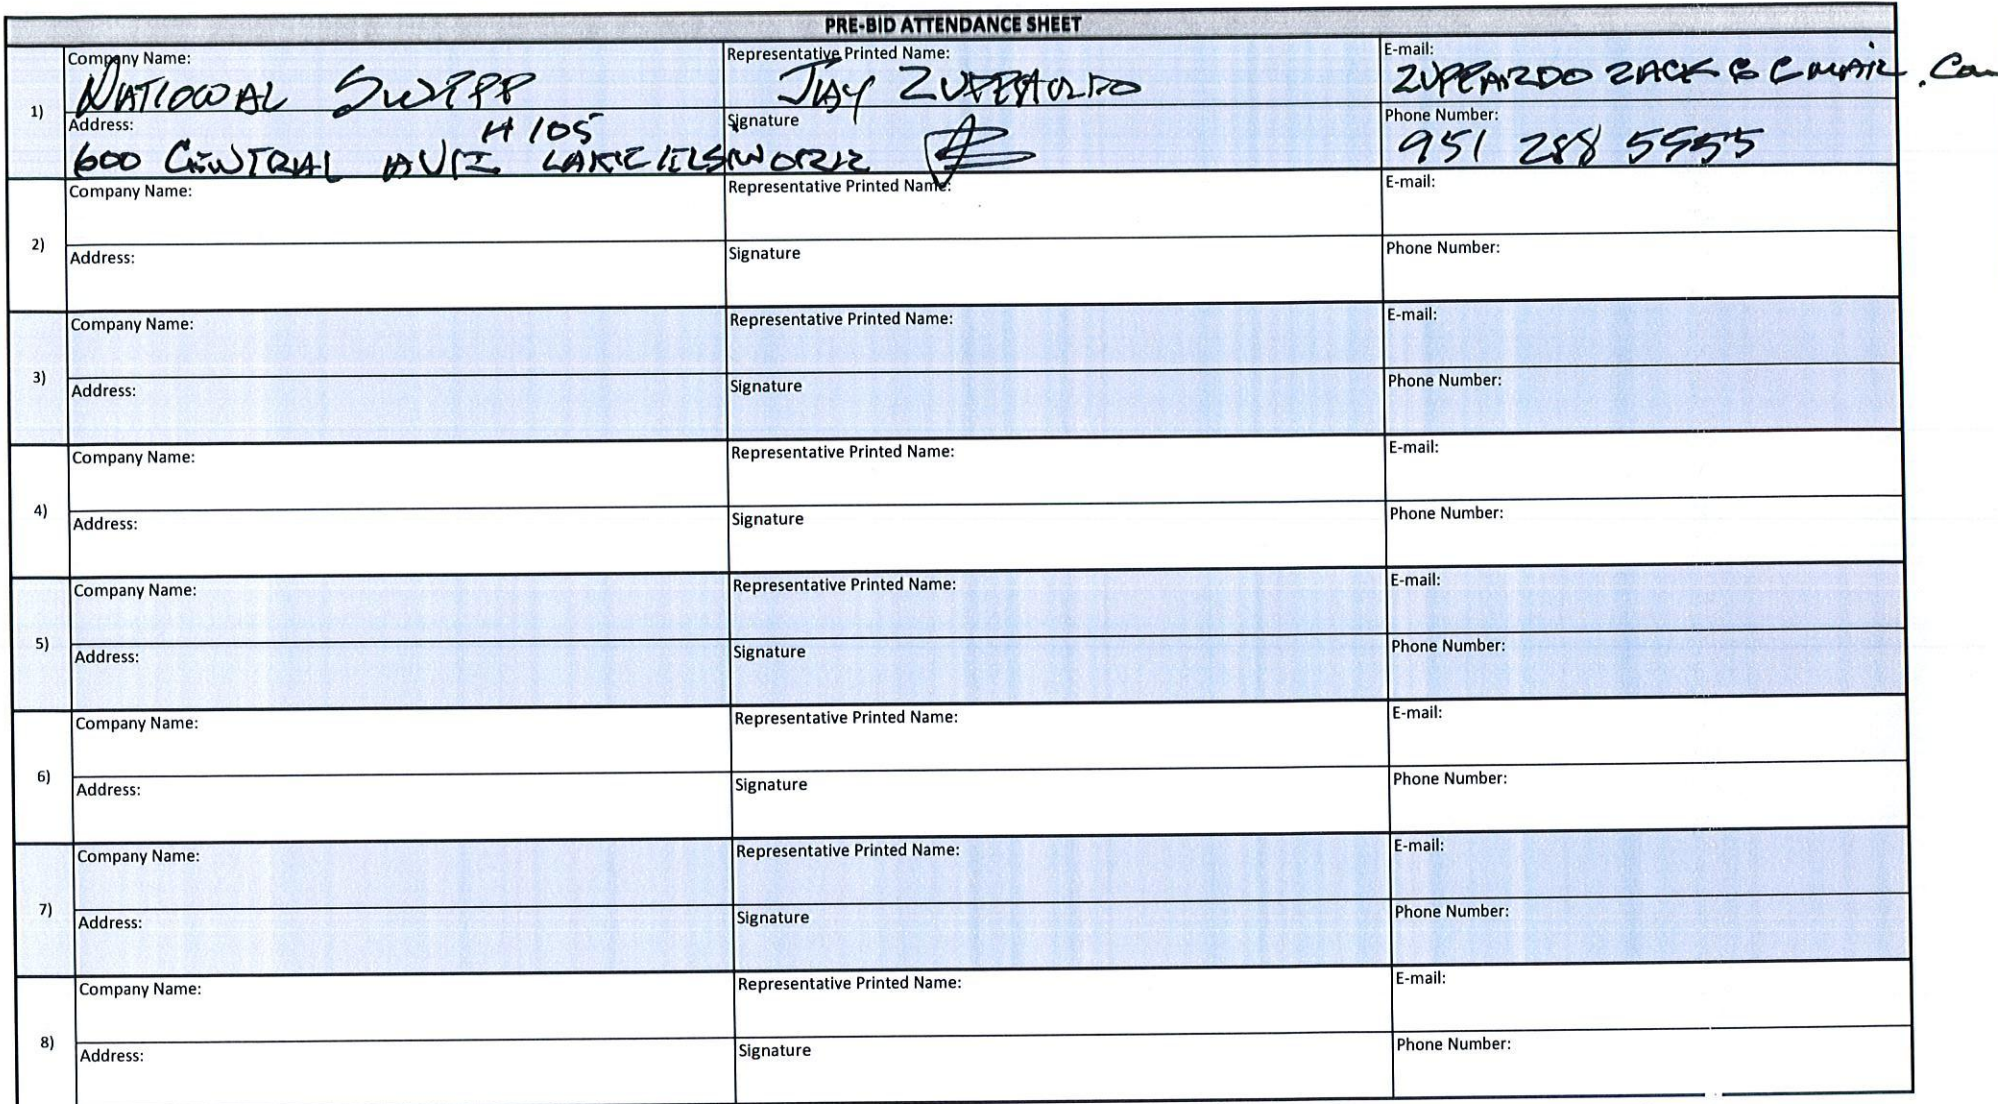 PRE-BID ATTENDANCE SHEET
Company Name: Representative Printed Name: E-mail:
NATIONAL SWPPP JAY ZUPPARDO ZUPPARDO ZACK @ GMAIL .Com
1)
Address: H105 Signature Phone Number:
600 CENTRAL AVE LAKE ELSINORE 951 288 5955
Company Name: Representative Printed Name: E-mail:
2)
Address: Signature Phone Number:
Company Name: Representative Printed Name: E-mail:
3)
Address: Signature Phone Number:
Company Name: Representative Printed Name: E-mail:
4)
Address: Signature Phone Number:
Company Name: Representative Printed Name: E-mail:
5)
Address: Signature Phone Number:
Company Name: Representative Printed Name: E-mail:
6)
Address: Signature Phone Number:
Company Name: Representative Printed Name: E-mail:
7)
Address: Signature Phone Number:
Company Name: Representative Printed Name: E-mail:
8)
Address: Signature Phone Number: